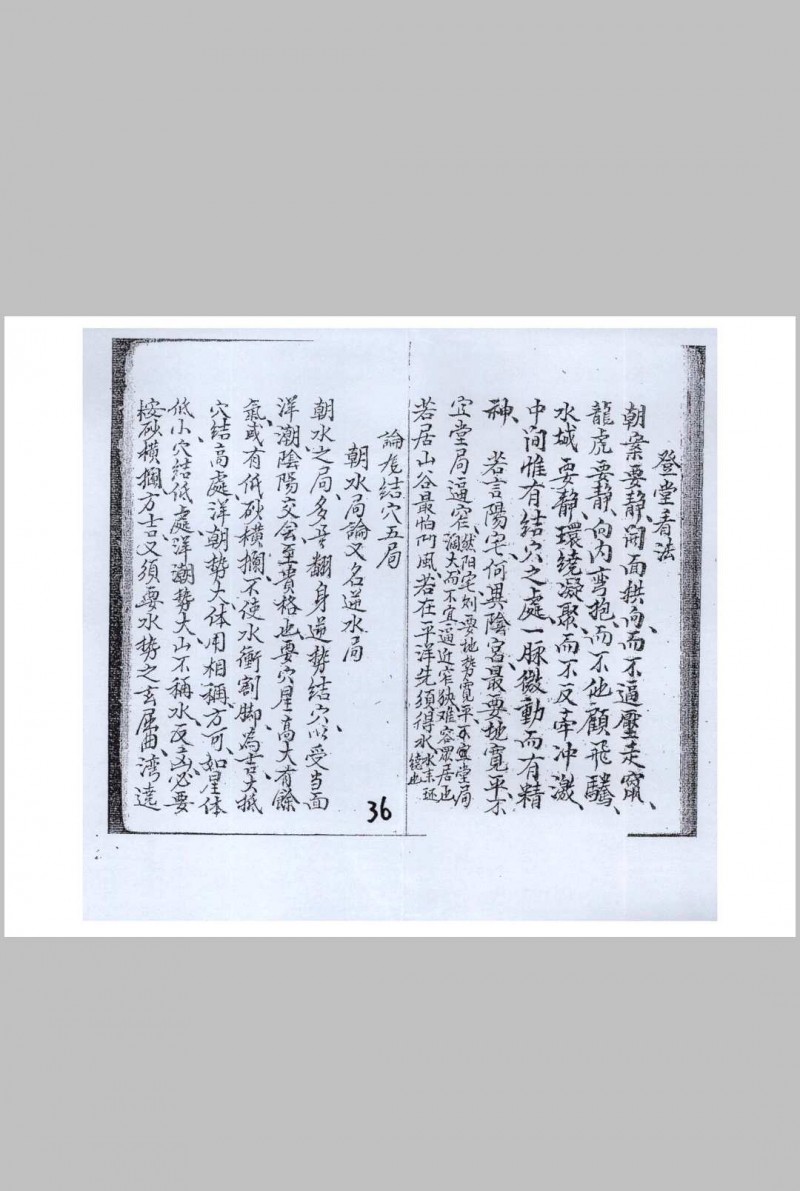 登堂看法
朝案要静、開面拱向、而不逼壓走竄、
龍虎要静、向内弯抱、而不他顧飛騰、
水城要静、環繞凝聚、而不反牽冲激、
中间惟有結穴之處、一脉微動而有精
神、若言陽宅、何異陰宫、最要地寬平、不
宜堂局逼窄、然阳宅、则要地势寛平、不宜堂局
濶大、而不宜逼近窄狭难容眾居也
若居山谷最怕凹风、若在平洋先須得水、水主
繞也
論龙結穴五局
朝水局論又名逆水局
朝水之局、多是翻身逆势結穴、以受当面
洋潮、陰陽交会、至貴格也、要穴星高大有餘
氣、或有低砂横攔、不使水衝割脚、為吉、大抵
穴結高處、洋朝势大、体用相稱、方可、如星体
低小、穴結低處、洋潮势大、山不稱水、反凶、必要
桉砂横攔、方吉、又須要水势之玄屈曲、湾遶
36